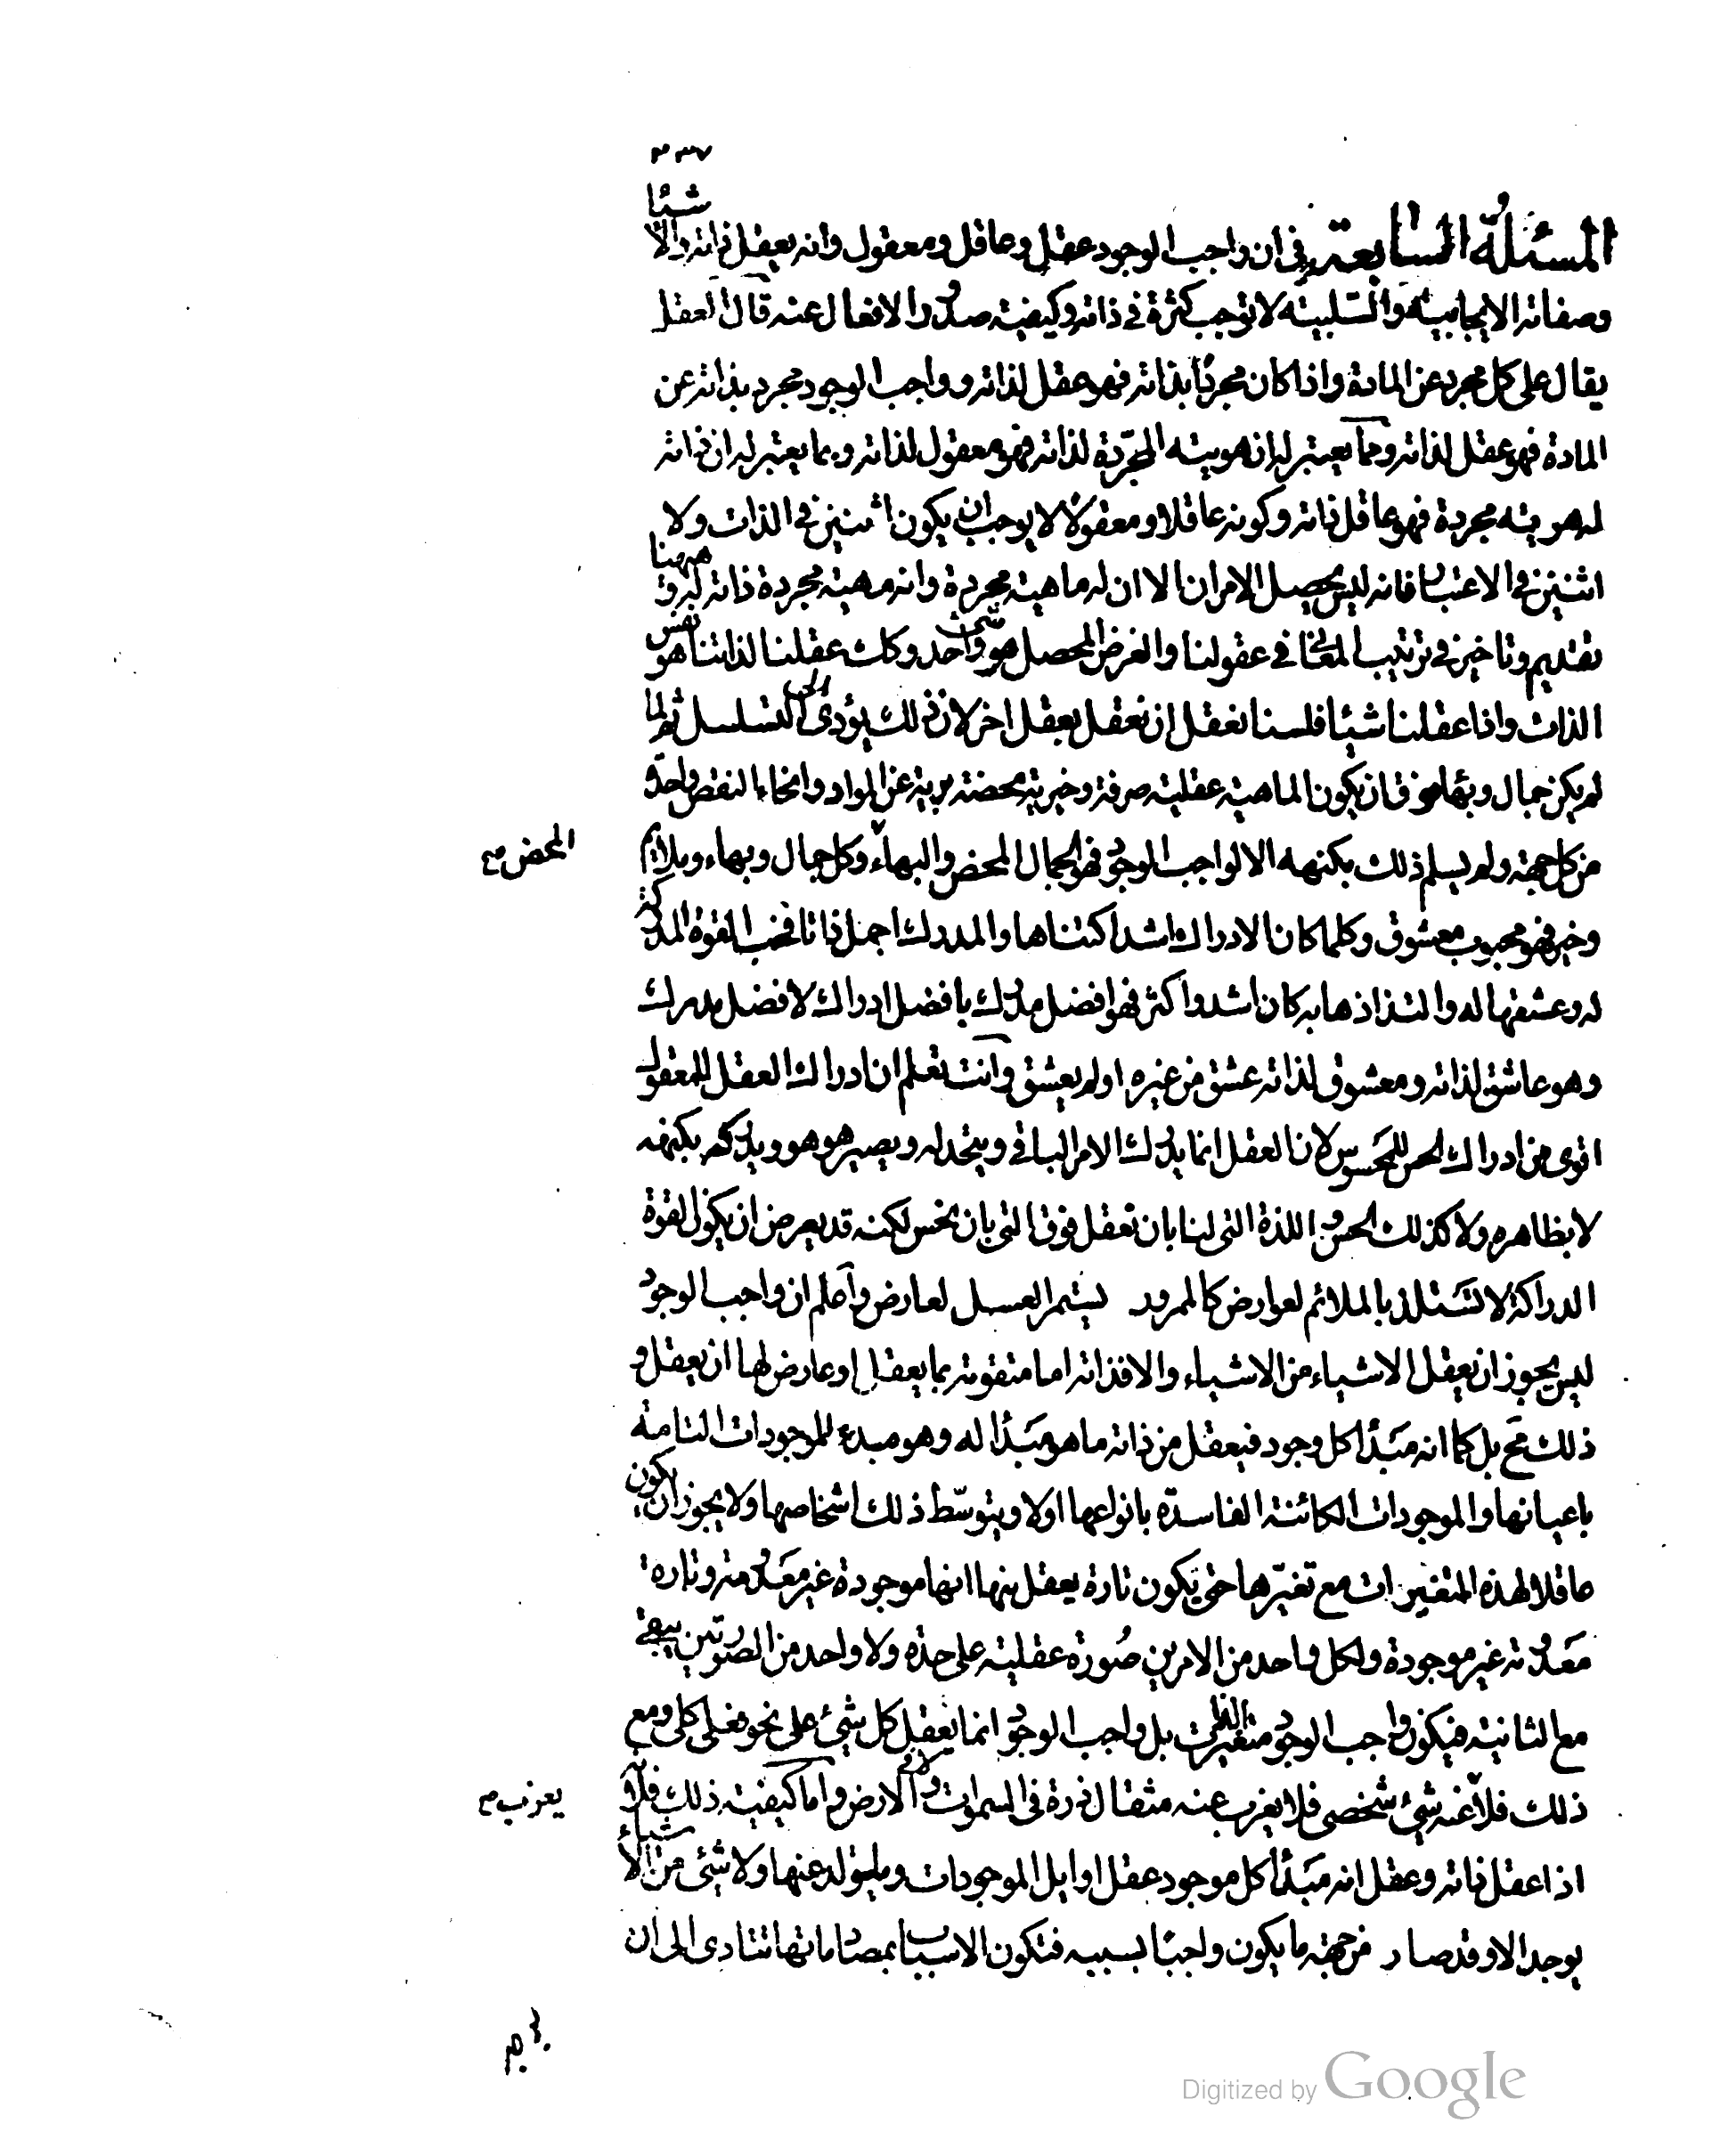 ٣٣٧
المسئلة السابعة في ان واجب الوجود عقل وعاقل ومعقول وانه يعقل ذاته والاشيئا
وصفاته الايجابية والسلبية لا توجب كثرة في ذاته وكيفية صدور الافعال عنه قال العقل
يقال على كل مجرد عن المادة واذا كان مجردا بذاته فهو عقل لذاته وواجب الوجود مجرد بذاته عن
المادة فهو عقل لذاته وبما يعتبر له ان هويته المجردة لذاته فهو معقول لذاته وبما يعتبر له ان ذاته
له هوية مجردة فهو عاقل ذاته وكونه عاقلا ومعقولا لا يوجب ان يكون اثنين في الذات ولا
اثنين في الاعتبار فانه ليس يحصل الامران الا ان له ماهية مجردة وانه مهية مجردة ذاته له وههنا
تقديم وتاخير في ترتيب المعاني في عقولنا والغرض المحصل هو شئ واحد وكذلك عقلنا لذاتنا هو نفس
الذات واذا عقلنا شيئا فلسنا نعقل ان نعقل بعقل اخر لان ذلك يؤدى الى التسلسل ثم لما
لم يكن جمال وبهاء فوق ان يكون الماهية عقلية صرفة وخيرية محضة برية عن المواد وانحاء النقص واحدة
من كل جهة ولم يسلم ذلك بكنهه الا لواجب الوجود فهو الجمال المحض والبهاء وكل جمال وبهاء وملايم
المحض صح
وخير فهو محبوب معشوق وكلما كان الادراك اشد اكتناها والمدرك اجمل ذاتا فحب القوة المدركة
له وعشقها له والتذاذها به كان اشد واكثر فهو افضل مدرك بافضل ادراك لافضل مدرك
وهو عاشق لذاته ومعشوق لذاته عشق من غيره او لم يعشق وانت تعلم ان ادراك العقل للمعقول
اقوى من ادراك الحس للمحسوس لان العقل انما يدرك الامر الباقي ويتحد له ويصير هو هو ويدركه بكنهه
لا بظاهره ولا كذلك الحس واللذة التي لنا بان نعقل فوق التي بان نحس لكنه قد يعرض ان يكون القوة
الدراكة لا تستلذ بالملائم لعوارض كالممرور يستمر العسل لعارض واعلم ان واجب الوجود
ليس يجوز ان يعقل الاشياء من الاشياء والا فذاته اما متقومة بما يعقل او عارض لها ان يعقل و
ذلك مح بل كما انه مبدأ كل وجود فيعقل من ذاته ما هو مبدأ له وهو مبدء للموجودات التامة
باعيانها والموجودات الكائنة الفاسدة بانواعها اولا وبتوسط ذلك اشخاصها ولا يجوز ان يكون
عاقلا لهذه المتغيرات مع تغيرها حتى يكون تارة يعقل منها انها موجودة غير معدومة وتارة
معدومة غير موجودة ولكل واحد من الامرين صورة عقلية على حدة ولا واحد من الصورتين يبقى
مع الثانية فيكون واجب الوجود متغير الذات بل واجب الوجود انما يعقل كل شيء على نحو فعلي كلي ومع
ذلك فلا عنه شيء شخصي فلا يعزب عنه مثقال ذرة في السموات ولا في الارض واما كيفية ذلك فلانه
يعزب صح
اذا عقل ذاته وعقل انه مبدأ كل موجود عقل اوايل الموجودات وما يتولد عنها ولا شئ من الاشياء
يوجد الا وقد صار من جهة ما يكون واجبا بسببه فتكون الاسباب بمصادماتها تتادى الى ان
Digitized by Google